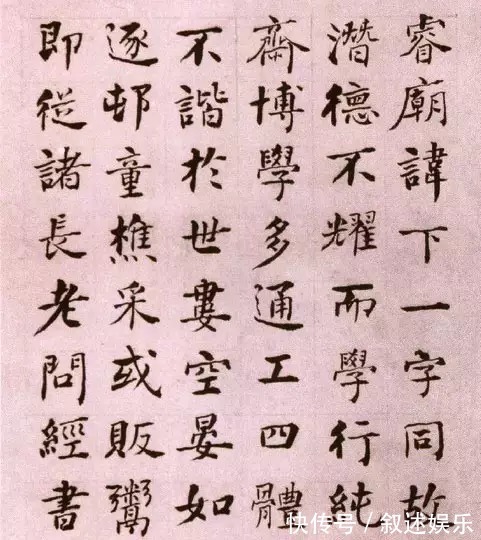 睿廟諱下一字同故
潛德不耀而學行純
齋博學多通工四體
不諧於世屢空晏如
逐邨童樵采或販鬻
即從諸長老問經書
快传号／叙述娱乐